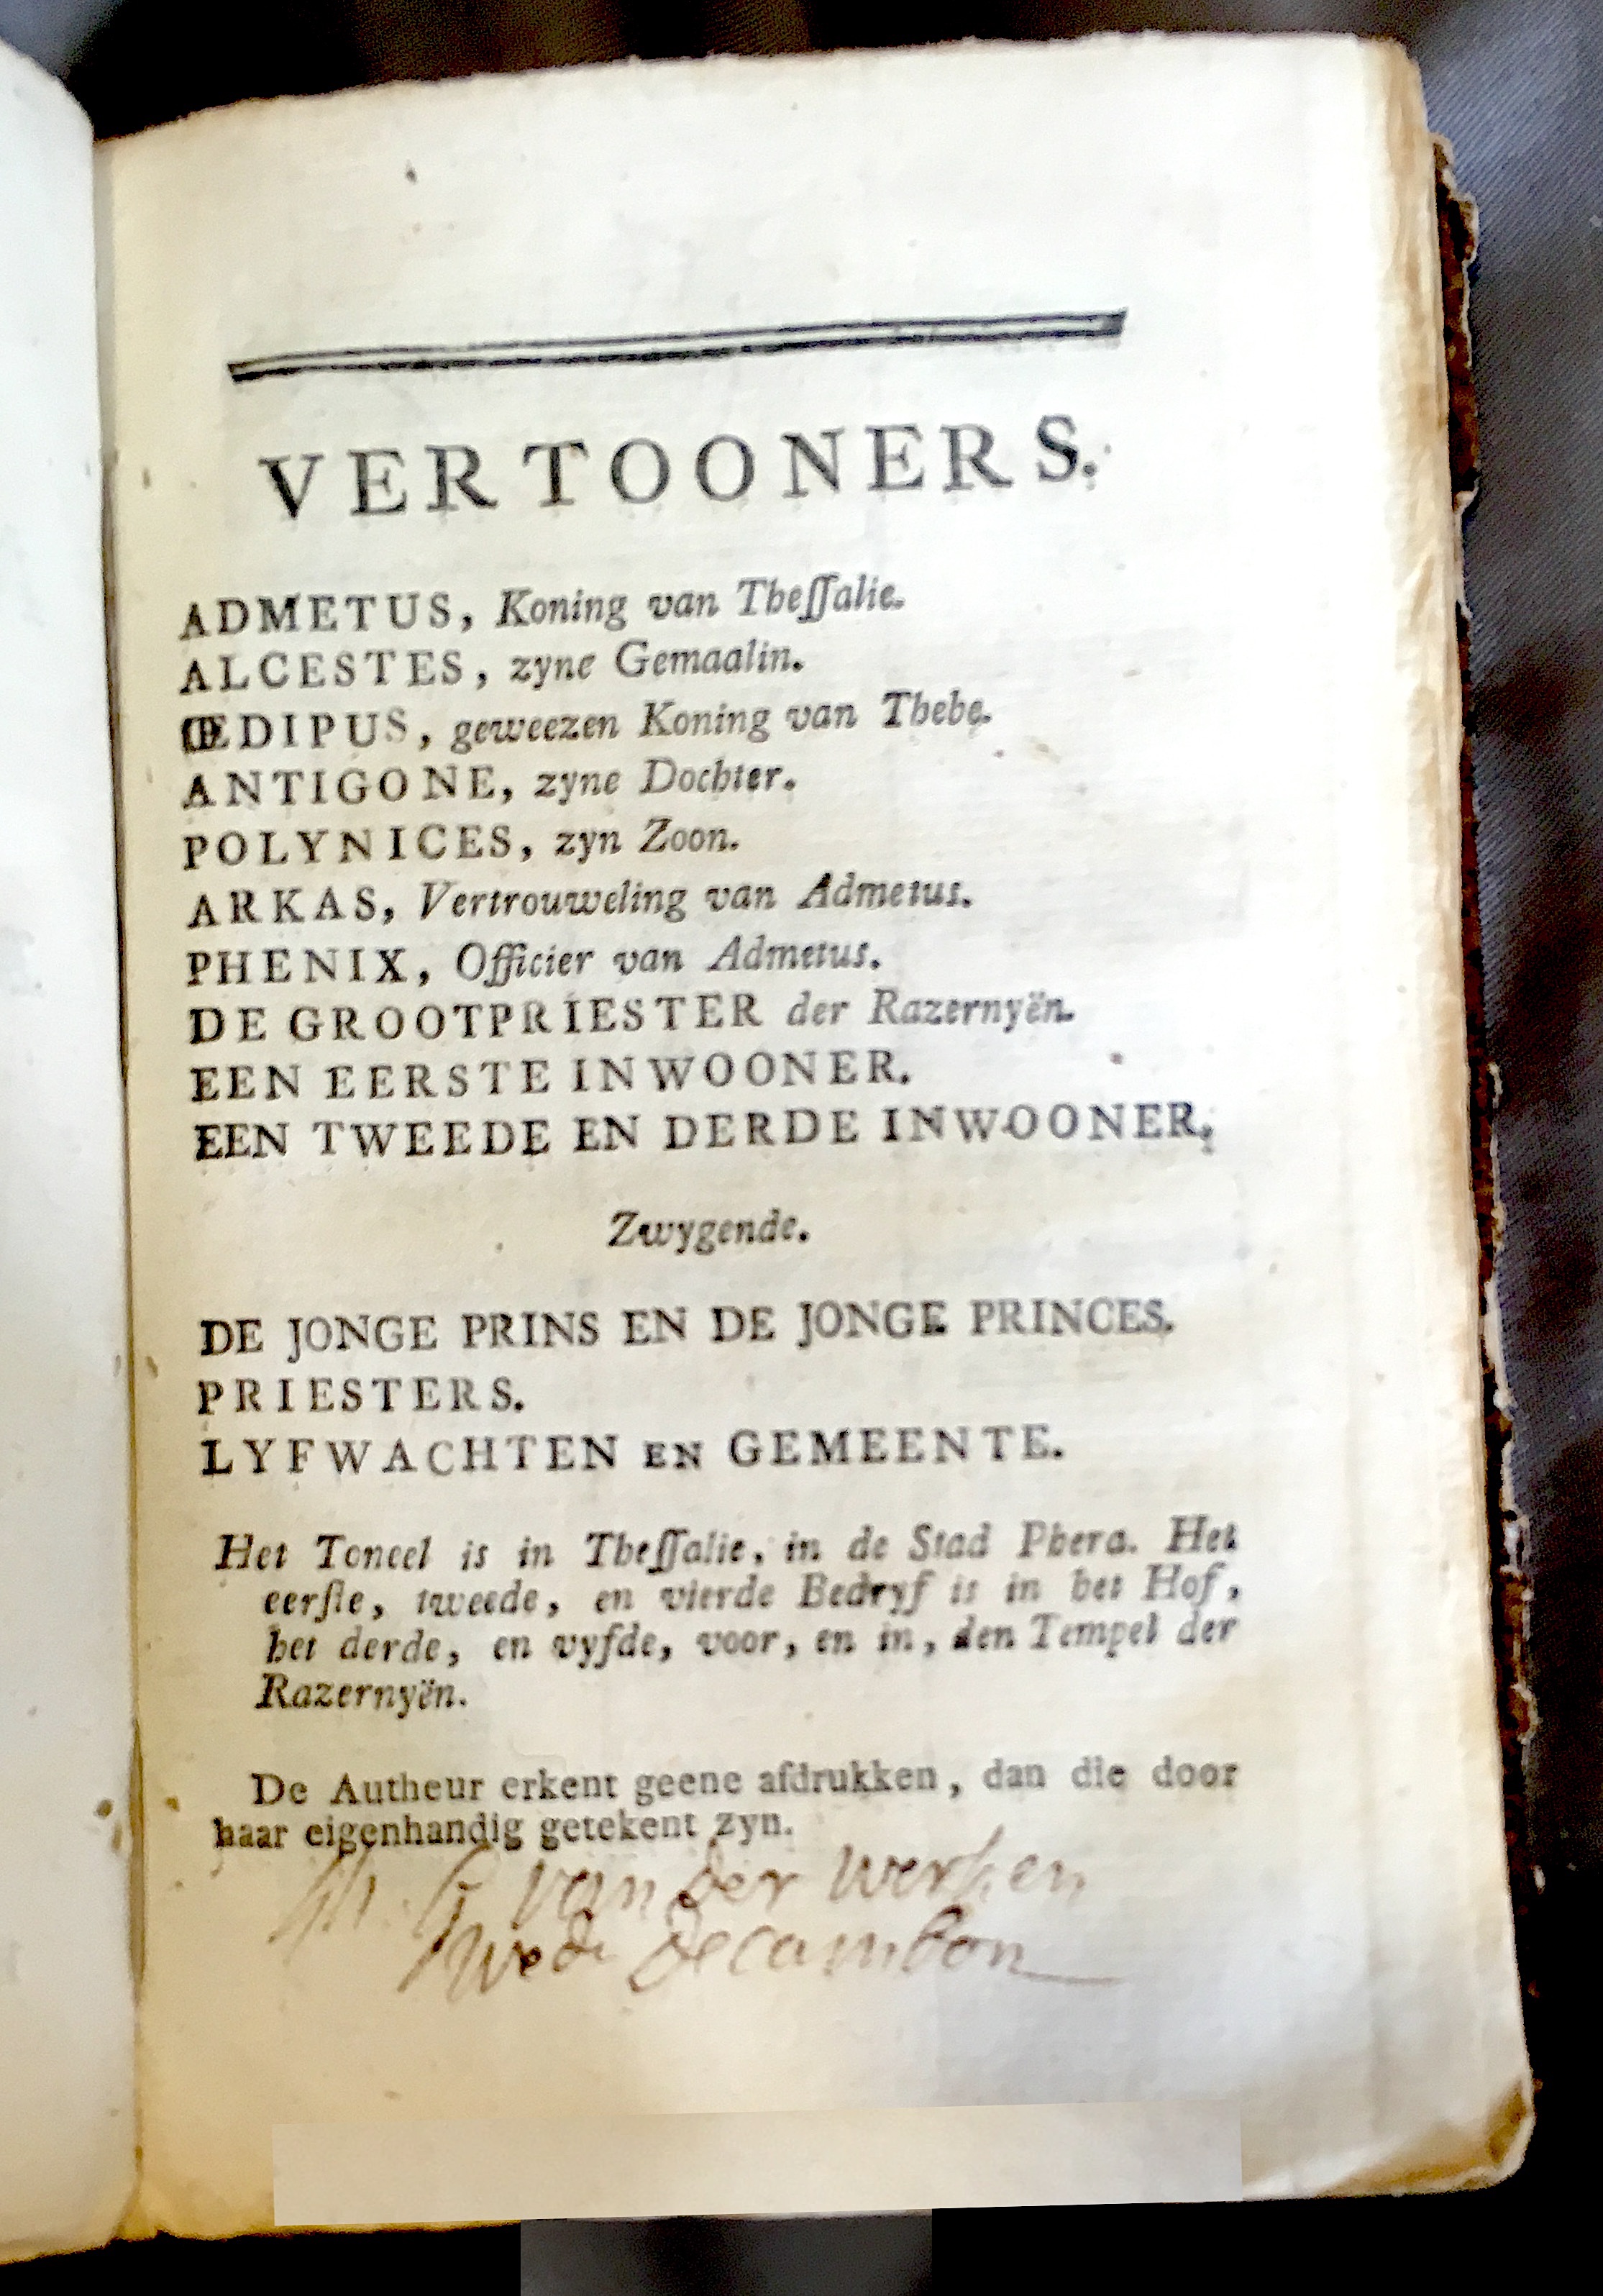 VERTOONERS.
ADMETUS, Koning van Theſſalie.
ALCESTES, zyne Gemaalin.
ŒDIPUS, geweezen Koning van Thebe.
ANTIGONE, zyne Dochter.
POLYNICES, zyn Zoon.
ARKAS, Vertrouweling van Admetus.
PHENIX, Officier van Admetus.
DE GROOTPRIESTER der Razernyën.
EEN EERSTE INWOONER.
EEN TWEEDE EN DERDE INWOONER.
Zwygende.
DE JONGE PRINS EN DE JONGE PRINCES.
PRIESTERS.
LYFWACHTEN EN GEMEENTE.
Het Toneel is in Theſſalie, in de Stad Phera. Het
eerſte, tweede, en vierde Bedryf is in het Hof,
het derde, en vyfde, voor, en in, den Tempel der
Razernyën.
De Autheur erkent geene afdrukken, dan die door
haar eigenhandig getekent zyn.
G van der werken
Wede decambon